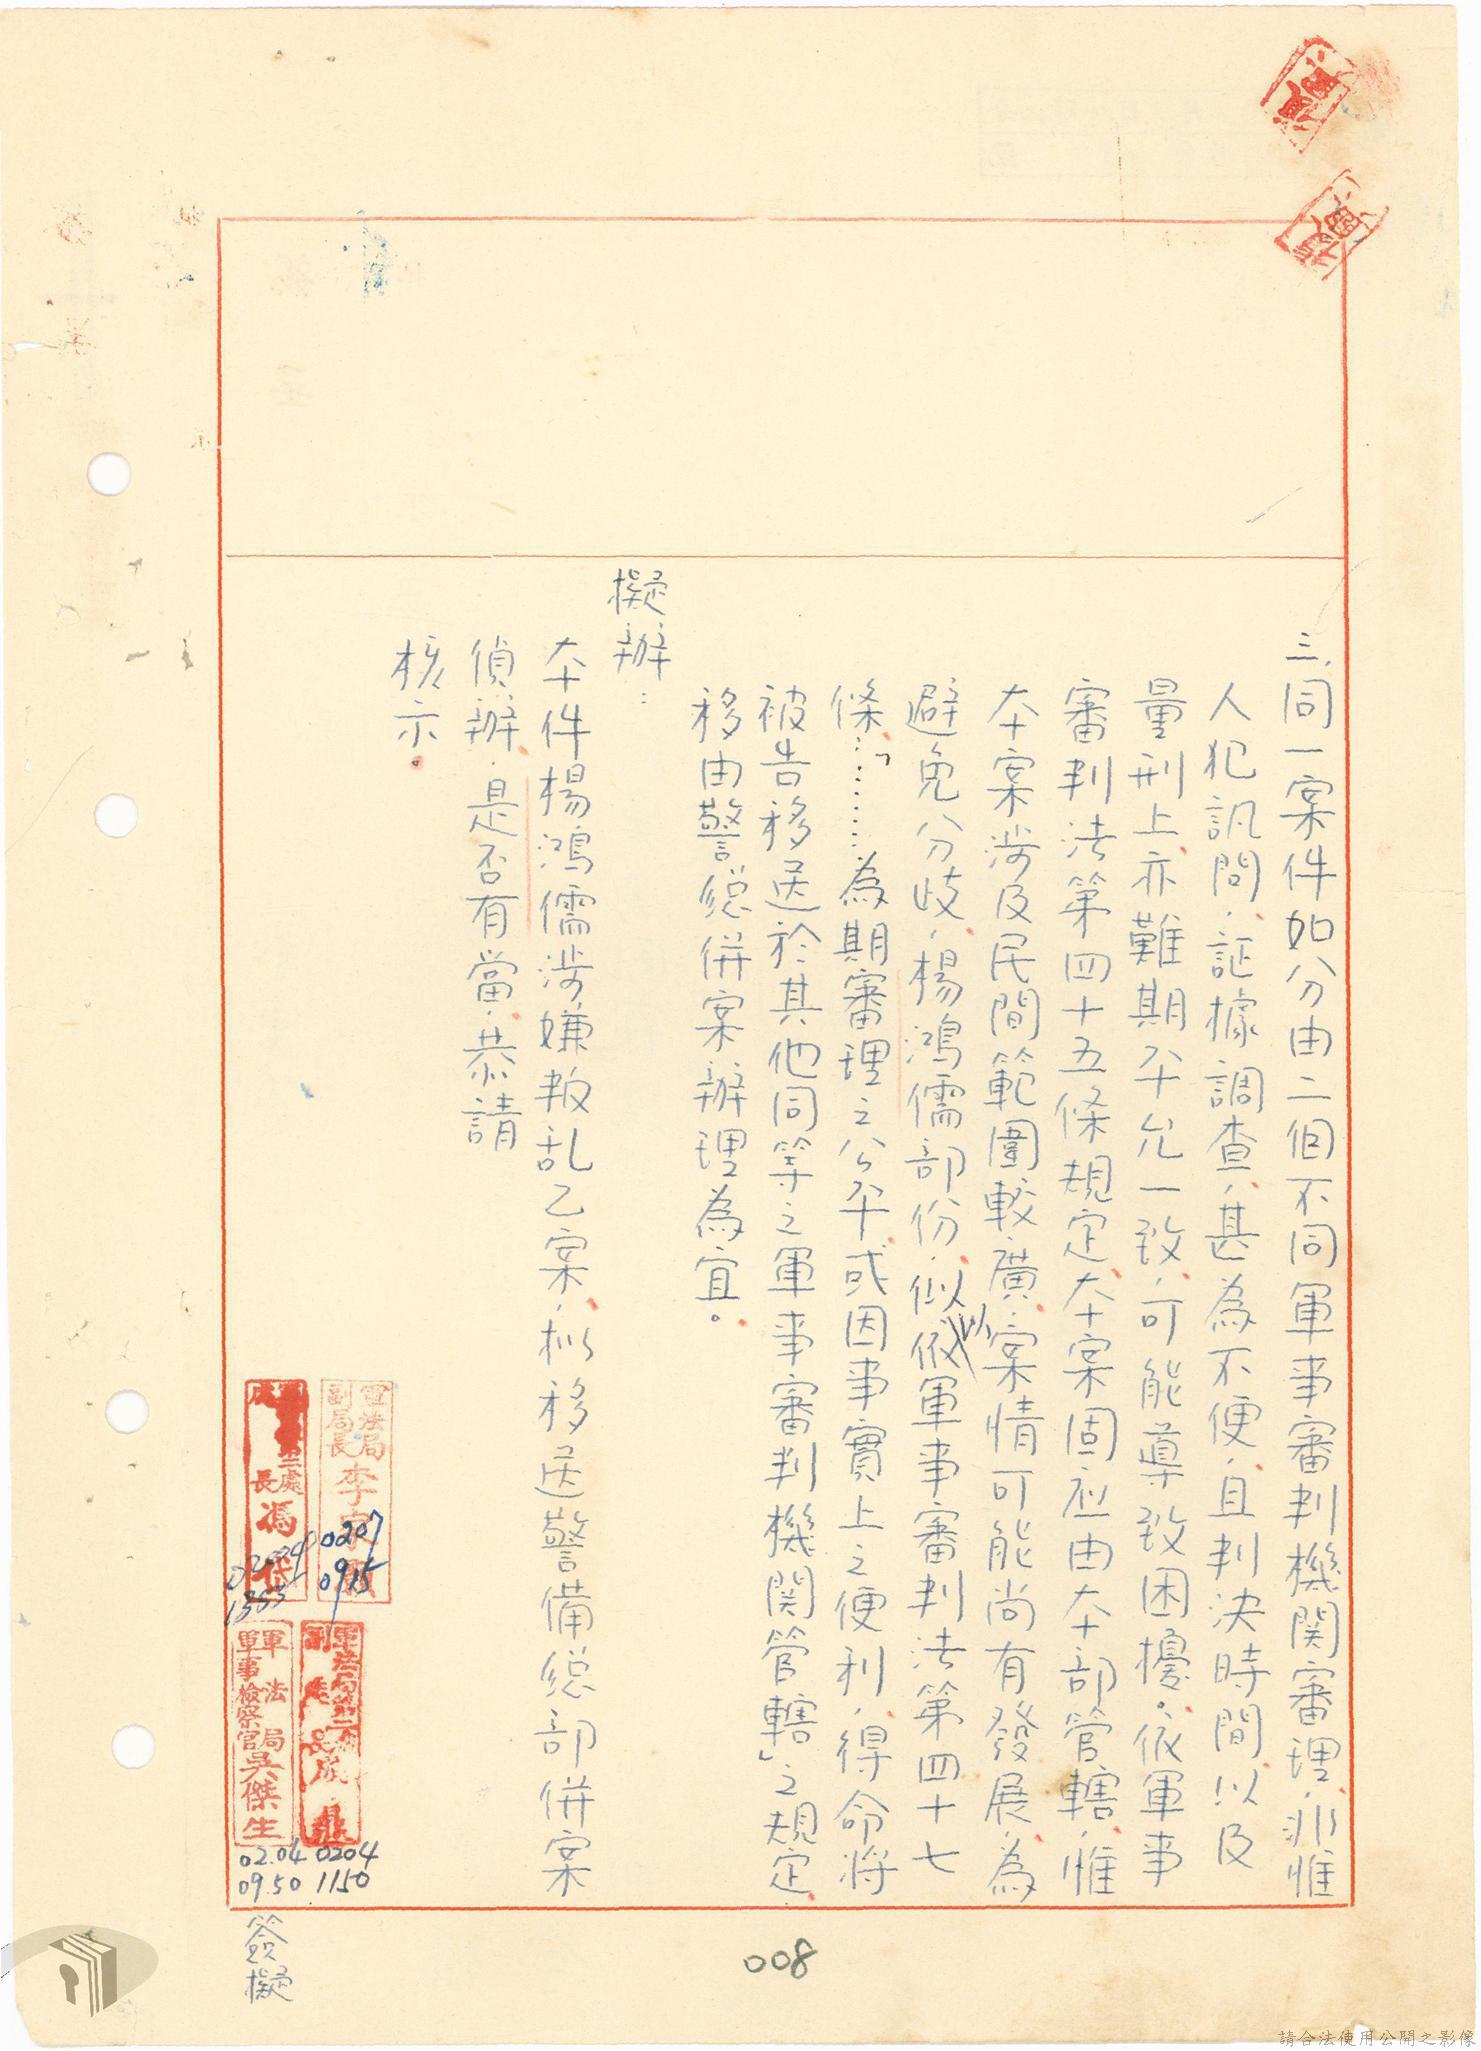 三、同一案件如分由二個不同軍事審判機関審理，非惟
人犯訊問，証據調查，甚為不便，且判決時間以及
量刑上亦難期平允一致，可能導致困擾。依軍事
審判法第四十五條規定本案固应由本部管轄，惟
本案涉及民間範圍較廣，案情可能尚有發展，為
避免分歧，楊鴻儒部份，似以依軍事審判法第四十七
條：「………為期審理之公平或因事實上之便利，得命將
被告移送於其他同等之軍事審判機関管轄」之規定
移由警総併案辦理為宜。
擬辦：
本件楊鴻儒涉嫌叛乱乙案，拟移送警備総部併案
偵辦，是否有當，恭請
核示。
軍法局
副局長李
0207
0915
處長馮
1353
副處長
0204
1150
軍法局
軍事檢察官吳傑生
02.04
09.50
簽擬
008
請合法使用公開之影像